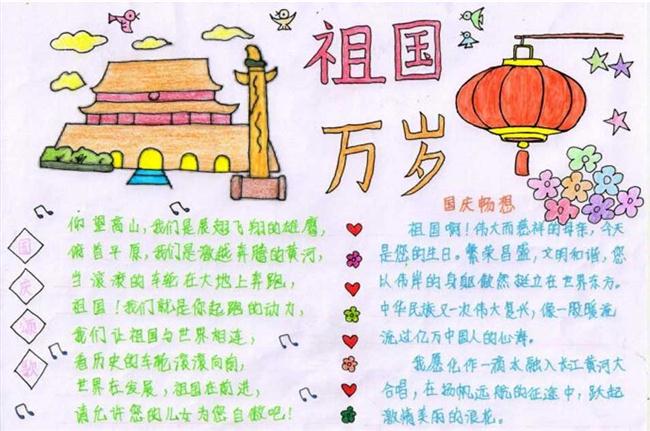 祖国
万岁
国庆颂歌
仰望高山,我们是展翅飞翔的雄鹰,
俯首平原,我们是激越奔腾的黄河,
当滚滚的车轮在大地上奔跑,
祖国!我们就是你起跑的动力,
我们让祖国与世界相连,
看历史的车轮滚滚向前,
世界在发展,祖国在前进,
请允许您的儿女为您自傲吧!
国庆畅想
祖国啊!伟大而慈祥的母亲,今天
是您的生日。繁荣昌盛,文明和谐,您
以伟岸的身躯傲然挺立在世界东方。
中华民族又一次伟大复兴,像一股暖流
流过亿万中国人的心海。
我愿化作一滴水融入长江黄河大
合唱,在扬帆远航的征途中,跃起
激情美丽的浪花。